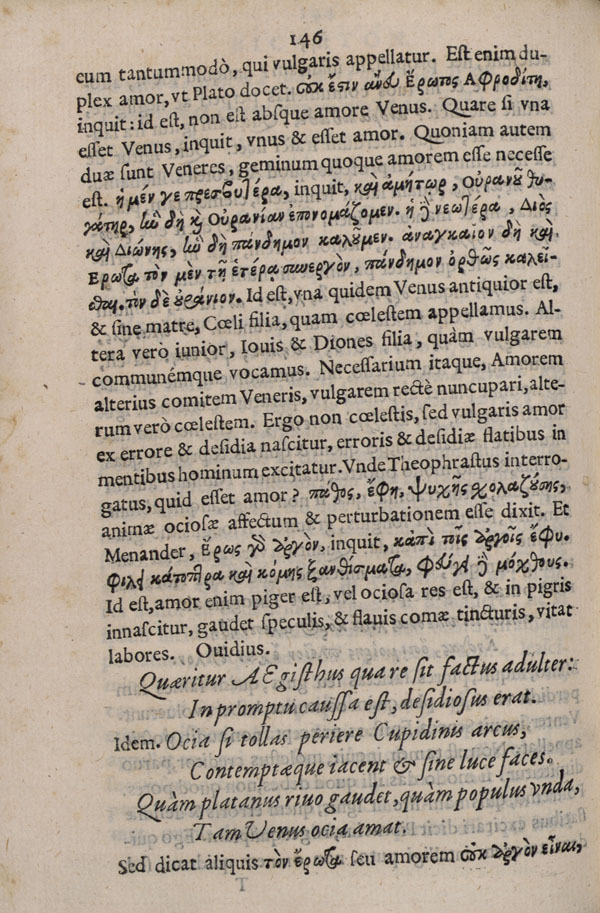 146
eum tantummodò, qui vulgaris appellatur. Est enim du-
plex amor, vt Plato docet. οὐκ ἔστιν ἄνευ ἔρωτος Αφροδίτη,
inquit: id est, non est absque amore Venus. Quare si vna
esset Venus, inquit, vnus & esset amor. Quoniam autem
duæ sunt Veneres, geminum quoque amorem esse necesse
est. ἡ μέν γε πρεσβυτέρα, inquit, καὶ ἀμήτωρ, Οὐρανοῦ θυ-
γάτηρ, ἣν δὴ καὶ Οὐρανίαν ἐπονομάζομεν. ἡ δὲ νεωτέρα, Διὸς
καὶ Διώνης, ἣν δὴ πάνδημον καλοῦμεν. ἀναγκαῖον δὴ καὶ
Ερωτα τὸν μὲν τῇ ἑτέρα συνεργὸν, πάνδημον ὀρθῶς καλεῖ-
σθαι. τὸν δὲ οὐράνιον. Id est, vna quidem Venus antiquior est,
& sine matre, Cœli filia, quam cœlestem appellamus. Al-
tera verò iunior, Iouis & Diones filia, quàm vulgarem
communémque vocamus. Necessarium itaque, Amorem
alterius comitem Veneris, vulgarem rectè nuncupari, alte-
rum verò cœlestem. Ergo non cœlestis, sed vulgaris amor
ex errore & desidia nascitur, erroris & desidiæ flatibus in
mentibus hominum excitatur. Vnde Theophrastus interro-
gatus, quid esset amor? πάθος, ἔφη, ψυχῆς σχολαζούσης,
animæ ociosæ affectum & perturbationem esse dixit. Et
Menander, ἔρως γὸ ἀργὸν, inquit, κἀπὶ τοῖς ἀργοῖς ἔφυ.
Φιλεῖ κάτοπτρα καὶ κόμης ξανθίσματα, φεύγει δὲ μόχθους.
Id est, amor enim piger est, vel ociosa res est, & in pigris
innascitur, gaudet speculis, & flauis comæ tincturis, vitat
labores. Ouidius.
Quæritur AEgisthus qua re sit factus adulter:
In promptu caussa est, desidiosus erat.
Idem. Ocia si tollas periere Cupidinis arcus,
Contemptæque iacent & sine luce faces.
Quàm platanus riuo gaudet, quàm populus vnda,
Tam Venus ocia amat.
Sed dicat aliquis τὸν ἔρωτα seu amorem οὐκ ἀργὸν εἶναι,
T